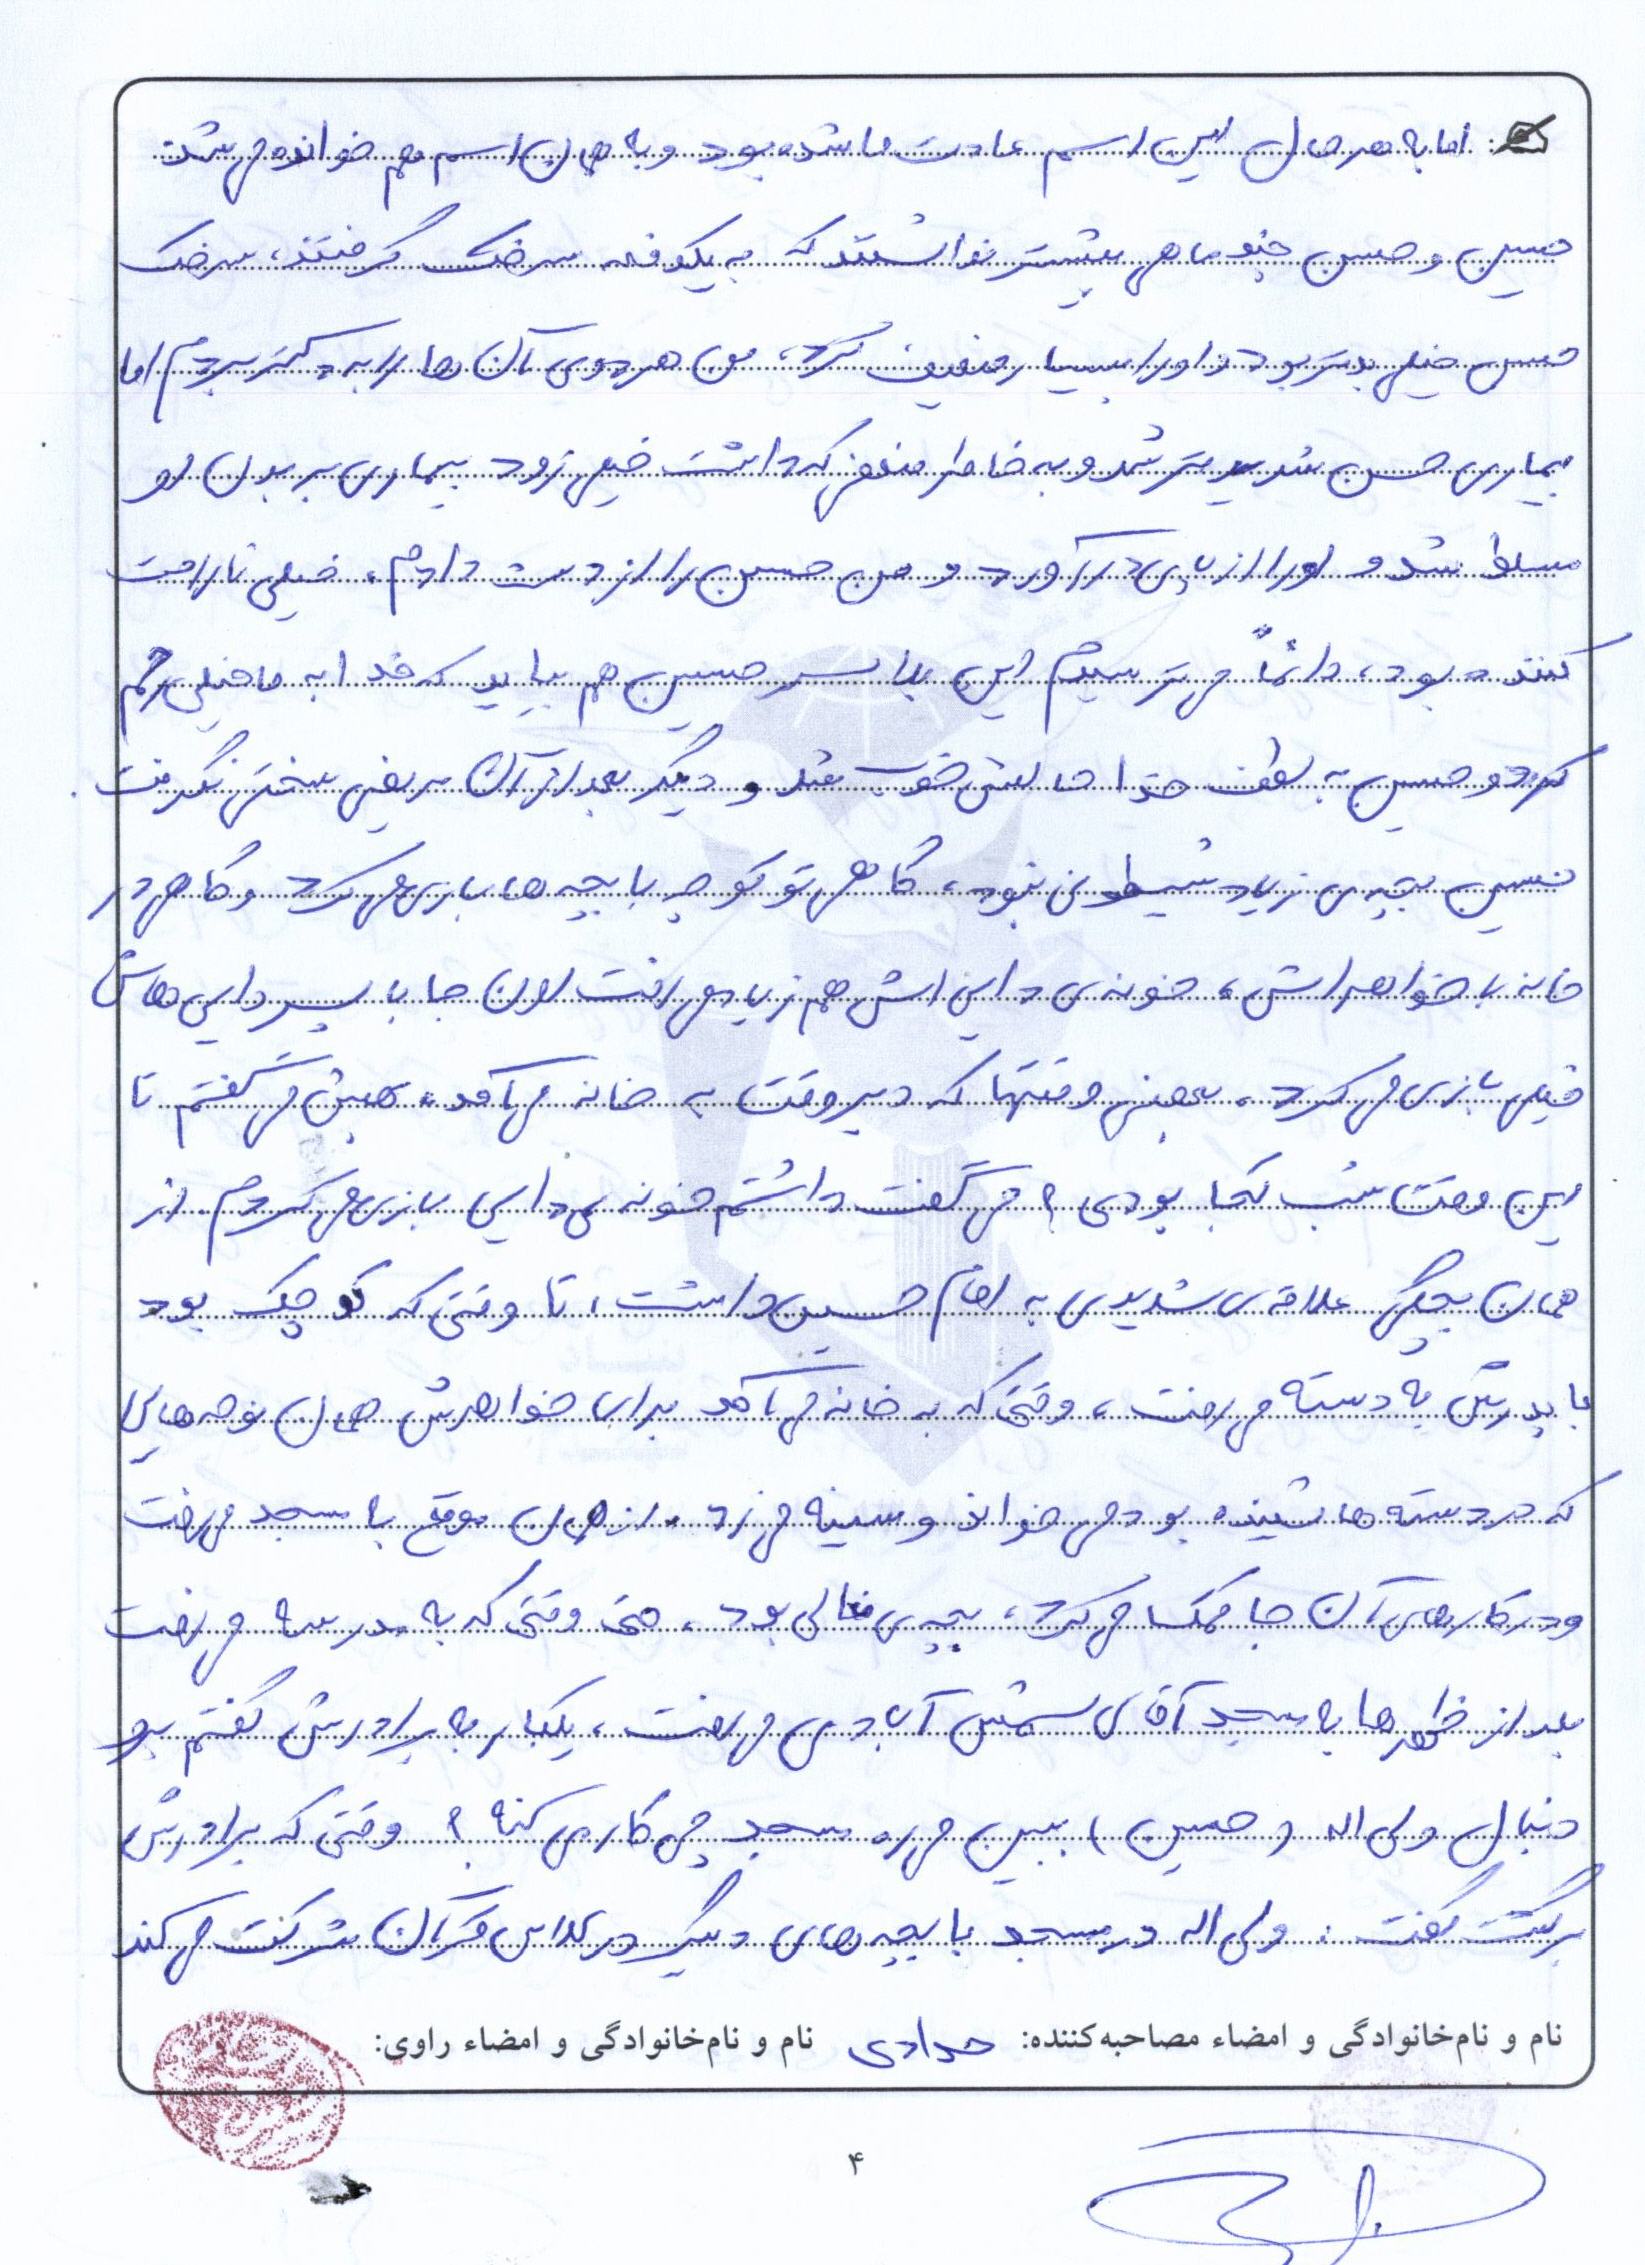 اما به هر حال این اسم عادت ما شده بود و به همان اسم هم خوانده می‌شد
حسین و حسن چند ماهی بیشتر نداشتند که به یکدفعه سرخک گرفتند، سرخک
حسن خیلی بدتر بود و او را بسیار ضعیف کرد، من هر دوی آن ها را به دکتر بردم اما
بیماری حسن شدیدتر شد و به خاطر ضعفی که داشت خیلی زود بیماری بر بدن او
مسلط شد و او را از پای در آورد و من حسن را از دست دادم، خیلی ناراحت
کننده بود، دائماً می ترسیدم این بلا سر حسین هم بیاید که خدا به ما خیلی رحم
کرد و حسین به لطف خدا حالش خوب شد و دیگر بعد از آن مریضی سختی نگرفت.
حسین بچه ی زیاد شیطونی نبود، گاهی تو کوچه با بچه ها بازی می کرد و گاهی در
خانه با خواهراش، خونه ی دایی اش هم زیاد می رفت اون جا با پسر دایی هاش
خیلی بازی می کرد، بعضی وقتها که دیروقت به خانه می آمد، بهش می گفتم تا
این وقت شب کجا بودی؟ می گفت داشتم خونه ی دایی بازی می کردم. از
همان بچگی علاقه ی شدیدی به امام حسین داشت، تا وقتی که کوچک بود
با پدرش به دسته می رفت، وقتی که به خانه می آمد برای خواهرش همان نوحه هایی
که در دسته ها شنیده بود می خواند و سینه می زد. از همان موقع با مسجد می رفت
و در کارهای آن جا کمک می کرد، بچه ی فعالی بود، حتی وقتی که به مدرسه می رفت
بعد از ظهرها به مسجد آقای شمس آبادی می رفت، یکبار به برادرش گفتم برو
دنبال ولی اله (حسین) ببین می ره مسجد چی کار می کنه؟ وقتی که برادرش
برگشت گفت: ولی اله در مسجد با بچه های دیگر در کلاس قرآن شرکت می کند
نام و نام‌خانوادگی و امضاء مصاحبه‌کننده: حدادی نام و نام‌خانوادگی و امضاء راوی:
۴